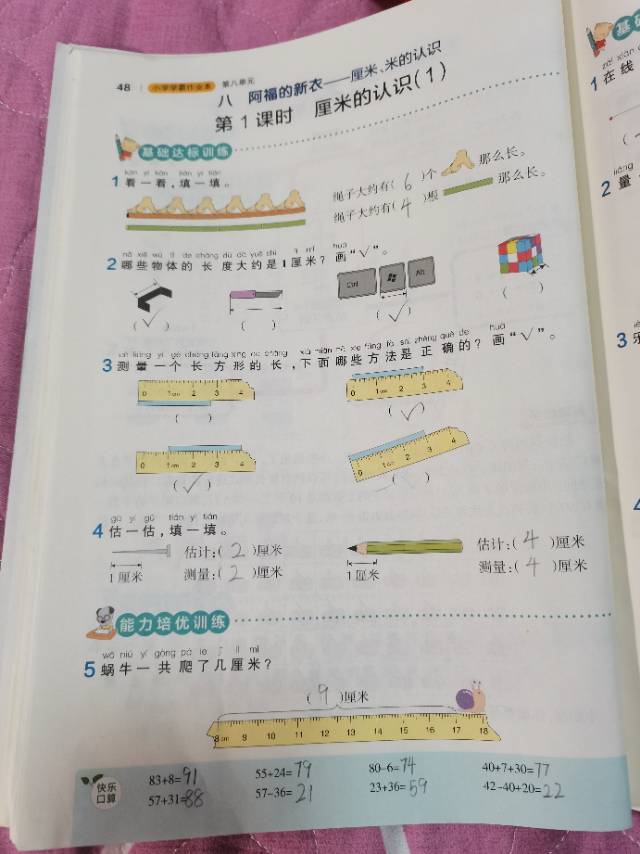 48 小学学霸作业本 第八单元
八 阿福的新衣——厘米、米的认识
第1课时 厘米的认识(1)
基础达标训练
kàn yi kàn tián yi tián
1 看一看,填一填。
绳子大约有( 6 )个 那么长。
绳子大约有( 4 )根 那么长。
2 哪些物体的长度大约是1厘米?画“√”。
Ctrl Alt
( √ ) ( ) ( √ ) ( )
3 测量一个长方形的长,下面哪些方法是正确的?画“√”。
0 1cm 2 3 4
0 1cm 2 3 4
( ) ( √ )
0 1cm 2 3 4
0 1cm 2 3 4
( √ ) ( )
gū yi gū tián yi tián
4 估一估,填一填。
估计:( 2 )厘米 估计:( 4 )厘米
1厘米 测量:( 2 )厘米 1厘米 测量:( 4 )厘米
能力培优训练
5 蜗牛一共爬了几厘米?
( 9 )厘米
8cm 9 10 11 12 13 14 15 16 17 18
快乐口算
83+8=91 55+24=79 80-6=74 40+7+30=77
57+31=88 57-36=21 23+36=59 42-40+20=22
基
1 在线
2 量
3 乐